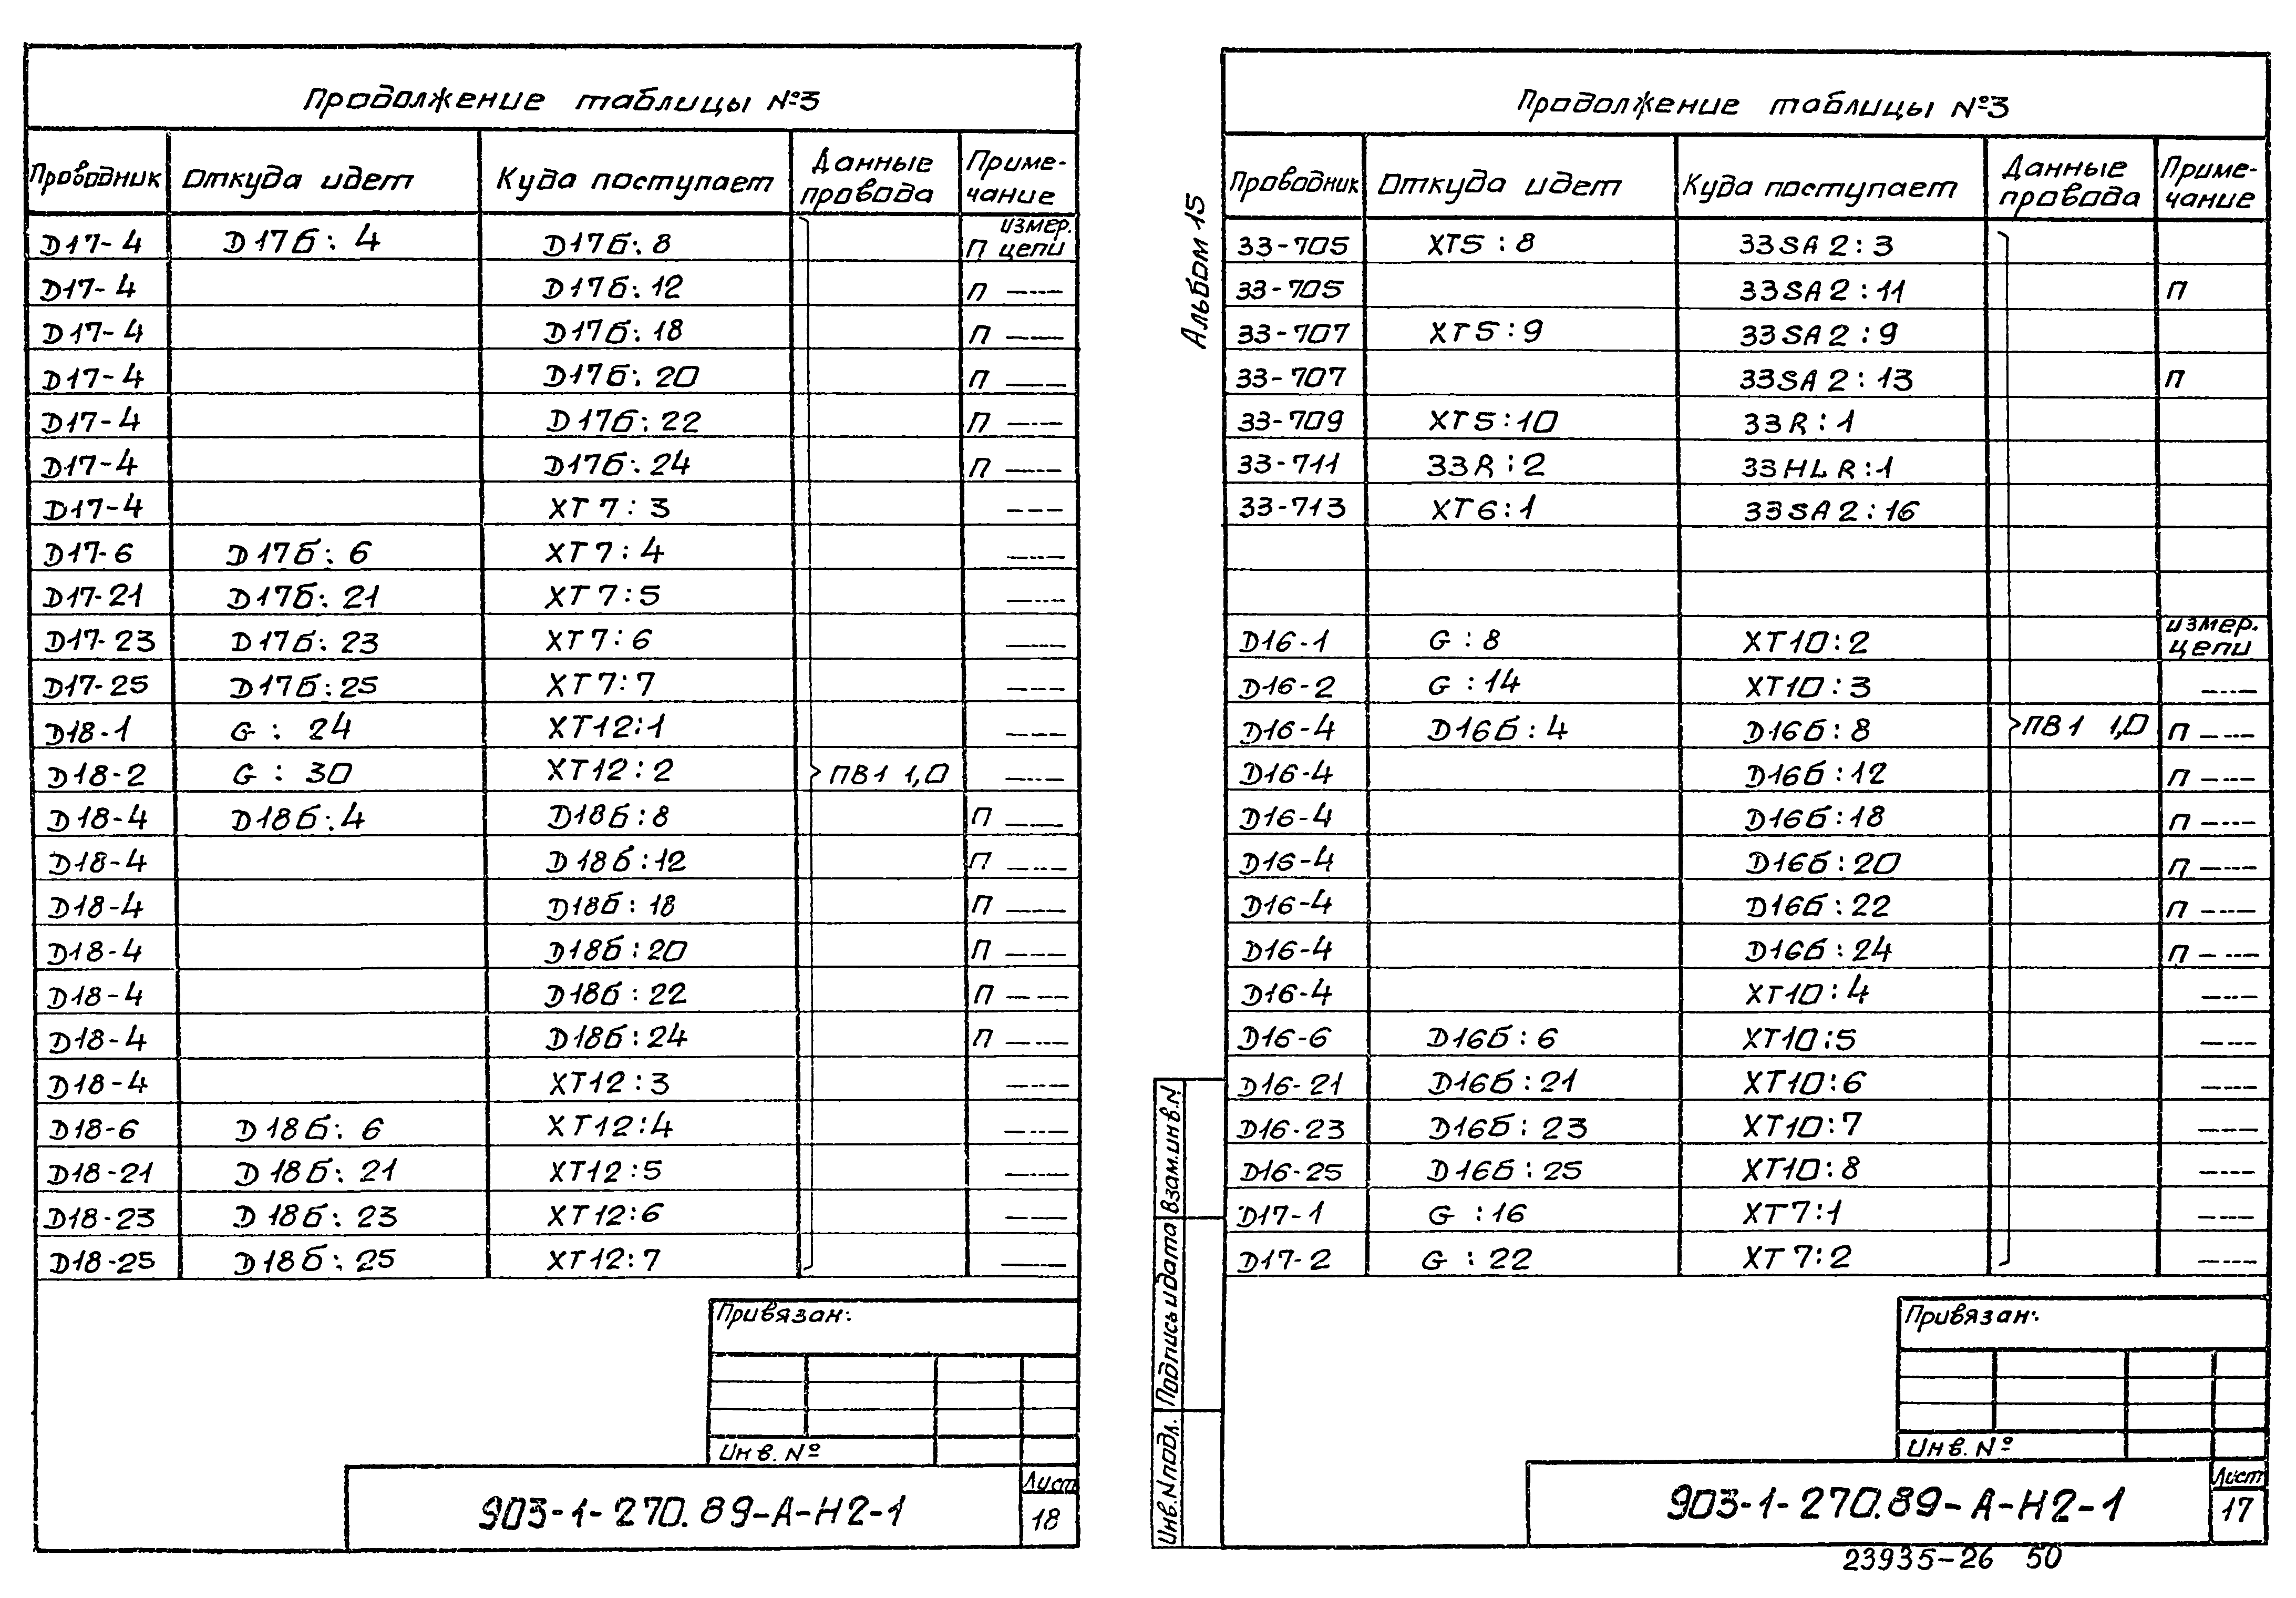 Продолжение таблицы №3
Проводник Откуда идет Куда поступает Данные провода Приме-чание
Д17-4 Д17б:4 Д17б:8 П измер. цепи
Д17-4 Д17б:12 П —"—
Д17-4 Д17б:18 П —"—
Д17-4 Д17б:20 П —"—
Д17-4 Д17б:22 П —"—
Д17-4 Д17б:24 П —"—
Д17-4 XT7:3 —"—
Д17-6 Д17б:6 XT7:4 —"—
Д17-21 Д17б:21 XT7:5 —"—
Д17-23 Д17б:23 XT7:6 —"—
Д17-25 Д17б:25 XT7:7 —"—
Д18-1 G:24 XT12:1 —"—
Д18-2 G:30 XT12:2 ПВ1 1,0 —"—
Д18-4 Д18б:4 Д18б:8 П —"—
Д18-4 Д18б:12 П —"—
Д18-4 Д18б:18 П —"—
Д18-4 Д18б:20 П —"—
Д18-4 Д18б:22 П —"—
Д18-4 Д18б:24 П —"—
Д18-4 XT12:3 —"—
Д18-6 Д18б:6 XT12:4 —"—
Д18-21 Д18б:21 XT12:5 —"—
Д18-23 Д18б:23 XT12:6 —"—
Д18-25 Д18б:25 XT12:7 —"—
Привязан:
Инв. №
903-1-270.89-А-Н2-1
Лист
18
Альбом 15
Продолжение таблицы №3
Проводник Откуда идет Куда поступает Данные провода Приме-чание
33-705 XT5:8 33SA2:3
33-705 33SA2:11 П
33-707 XT5:9 33SA2:9
33-707 33SA2:13 П
33-709 XT5:10 33R:1
33-711 33R:2 33HLR:1
33-713 XT6:1 33SA2:16
Д16-1 G:8 XT10:2 измер. цепи
Д16-2 G:14 XT10:3 —"—
Д16-4 Д16б:4 Д16б:8 ПВ1 1,0 П —"—
Д16-4 Д16б:12 П —"—
Д16-4 Д16б:18 П —"—
Д16-4 Д16б:20 П —"—
Д16-4 Д16б:22 П —"—
Д16-4 Д16б:24 П —"—
Д16-4 XT10:4 —"—
Д16-6 Д16б:6 XT10:5 —"—
Д16-21 Д16б:21 XT10:6 —"—
Д16-23 Д16б:23 XT10:7 —"—
Д16-25 Д16б:25 XT10:8 —"—
Д17-1 G:16 XT7:1 —"—
Д17-2 G:22 XT7:2 —"—
Взам.инв.N
Подпись и дата
Инв.N подл.
Привязан:
Инв. №
903-1-270.89-А-Н2-1
Лист
17
23935-26 50